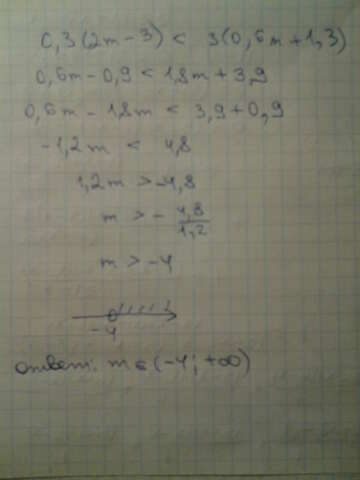 0,3(2m-3) < 3(0,6m+1,3)
0,6m-0,9 < 1,8m+3,9
0,6m-1,8m < 3,9+0,9
-1,2m < 4,8
1,2m > -4,8
m > - 4,8/1,2
m > -4
-4
ответ: m ∈ (-4; +∞)